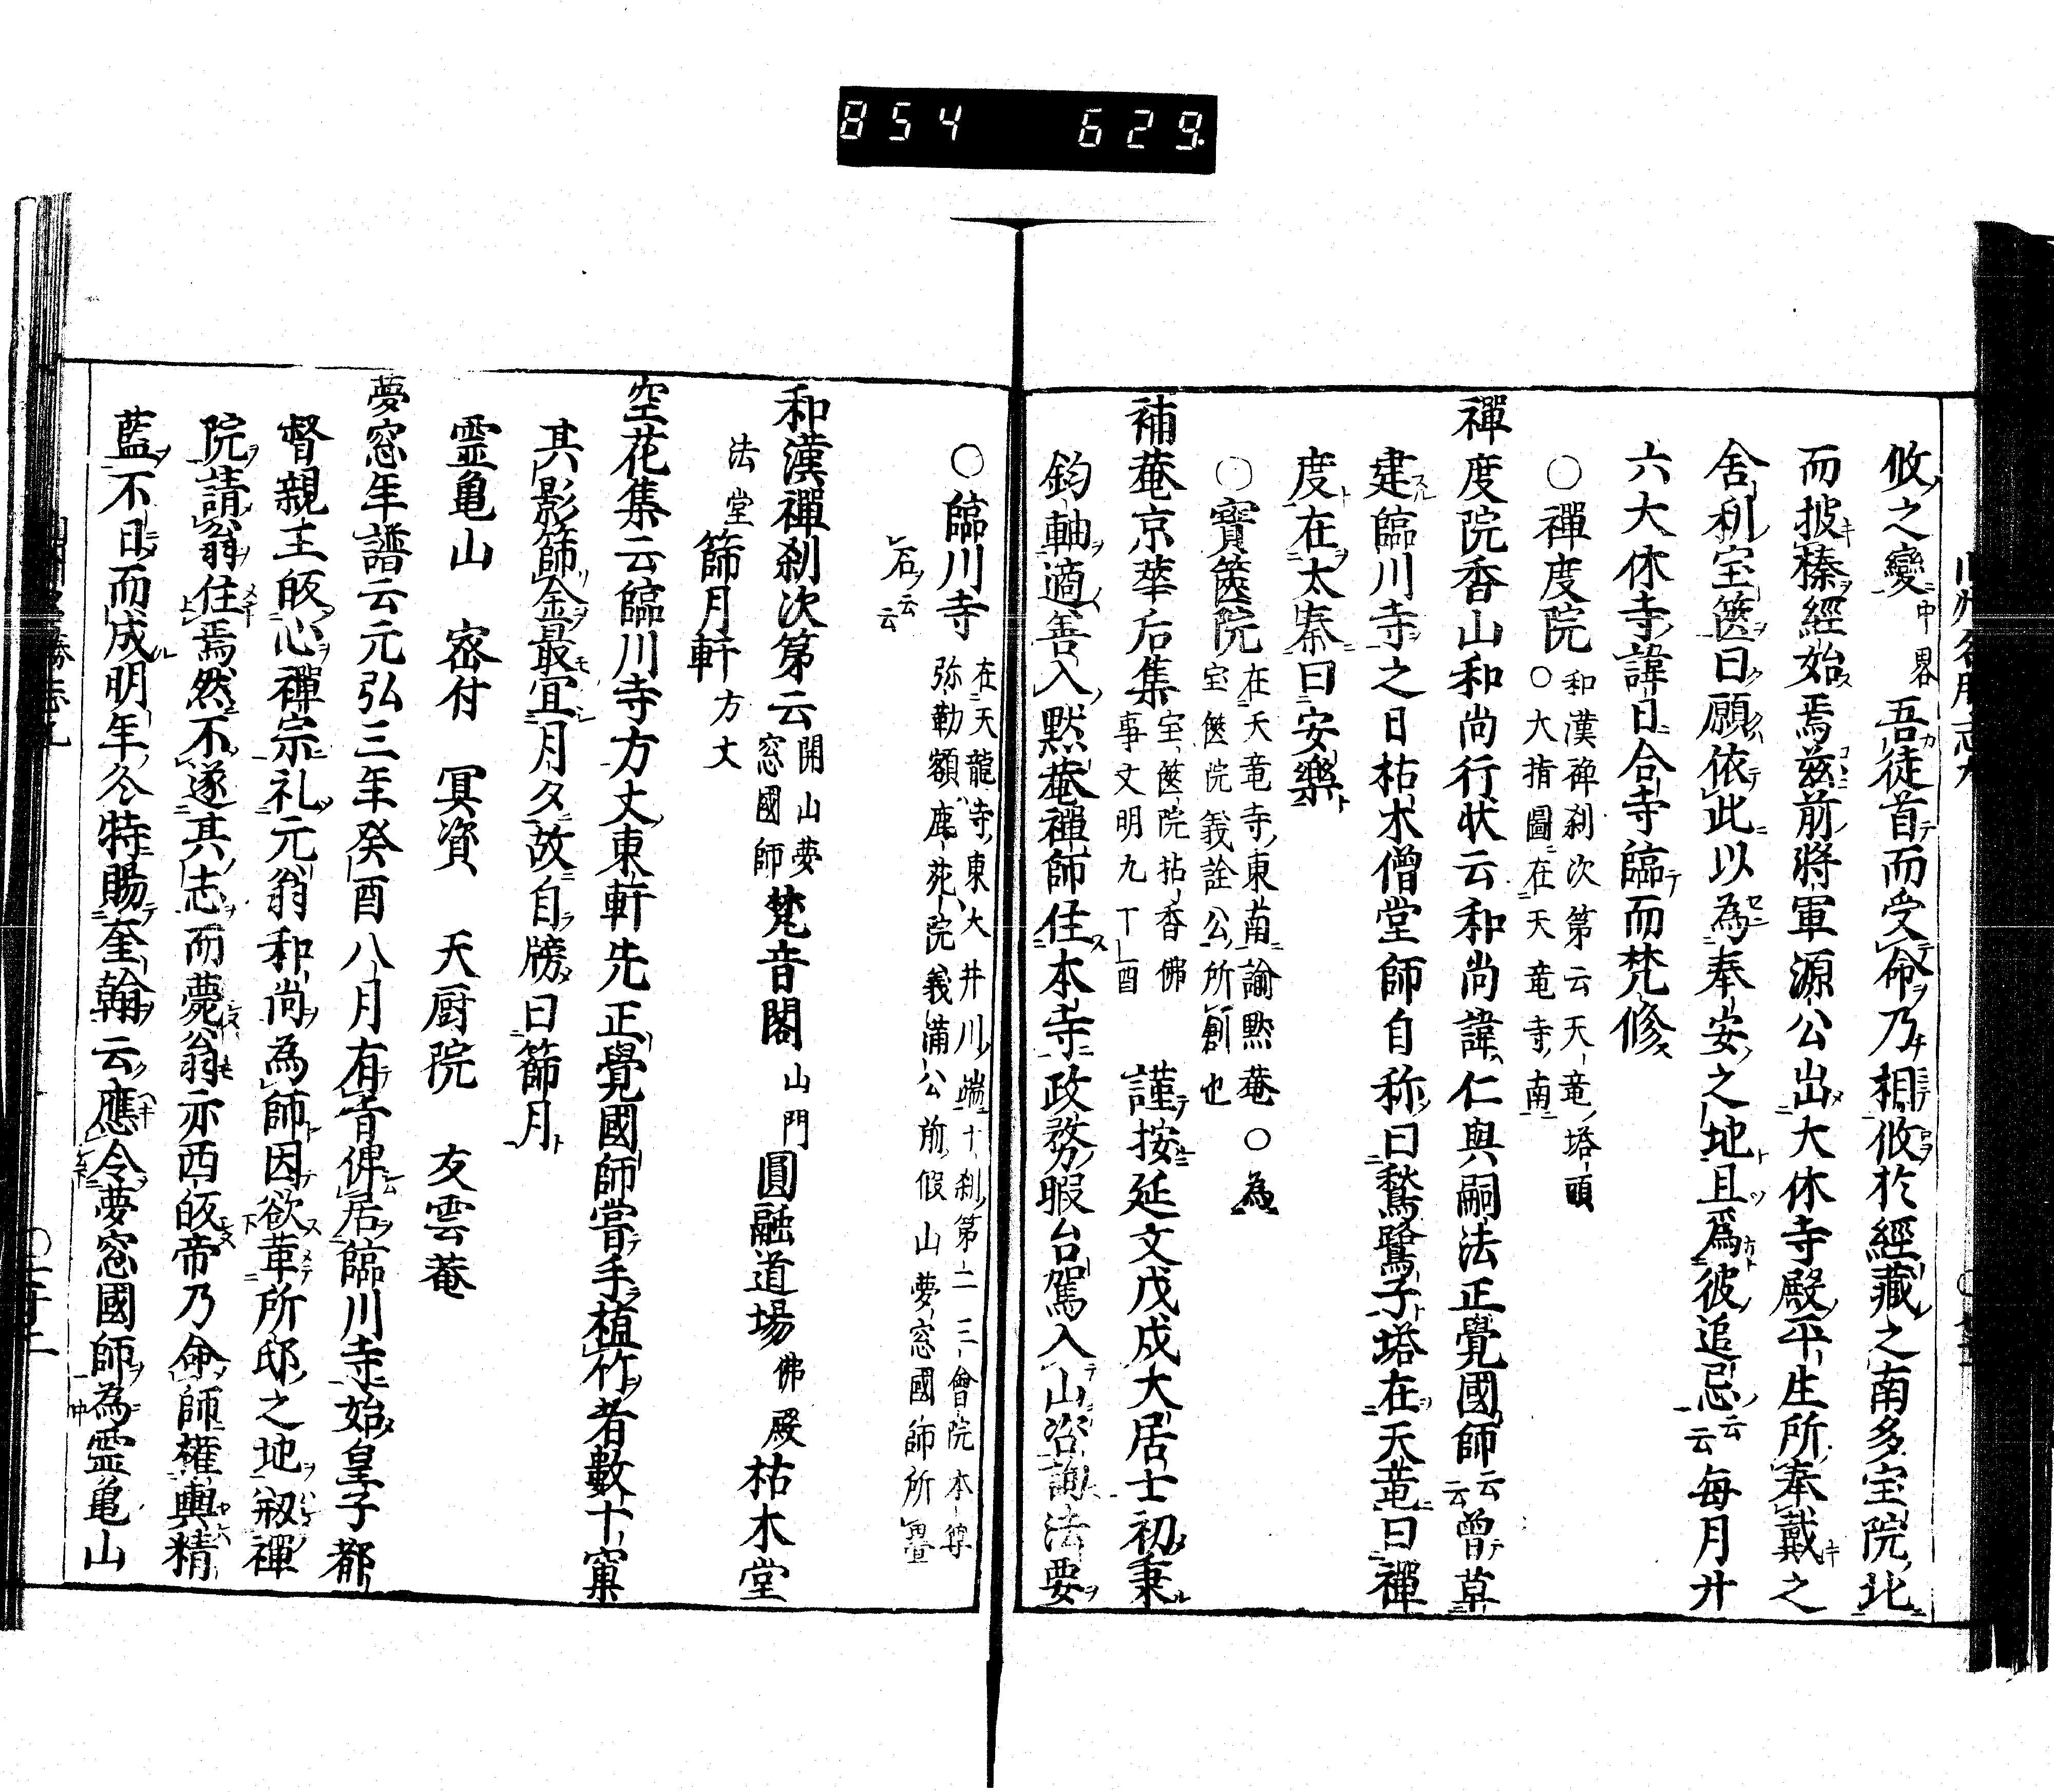 854 629
攸之變中畧吾徒首而受命乃相攸於經藏之南多宝院北
而披榛經始焉茲前將軍源公出大休寺殿平生所奉戴之
舍利宝篋曰願依此以為奉安之地且爲彼追忌云云每月廿
六大休寺諱日合寺臨而梵修
○禪度院
和漢禅刹次第云天竜塔頭
○大指圖在天竜寺南
禪度院香山和尚行状云和尚諱仁與嗣法正覺國師云云曾草
建臨川寺之日枯木僧堂師自称曰鷲鷺子塔在天竜曰禪
度在太秦曰安樂
○寶篋院
在天竜寺東南諭黙菴○為
宝篋院義詮公所創也
補菴京華后集
宝篋院拈香佛
事文明九丁酉
謹按延文戊戌大居士初秉
鈞軸適善入黙菴禪師住本寺政務暇台駕入山咨詢法要
○臨川寺
在天龍寺東大井川端十刹第二三會院本尊
弥勒額鹿苑院義満公前假山夢窓國師所畳
石云云
和漢禪刹次第云
開山夢
窓國師
梵音閣山門圓融道場佛殿枯木堂
法堂篩月軒方丈
空花集云臨川寺方丈東軒先正覺國師嘗手植竹者數十窠
其影篩金最宜月夕故自牓曰篩月
霊亀山 宻付 冥資 天厨院 友雲菴
夢窓年譜云元弘三年癸酉八月有旨俾居臨川寺始皇子都
督親王皈心禪宗礼元翁和尚為師因欲革所邸之地剏禪
院請翁住焉然不遂其志而薨翁亦西皈帝乃命師權輿精
藍不日而成明年冬特賜奎翰云應令夢窓國師為霊亀山